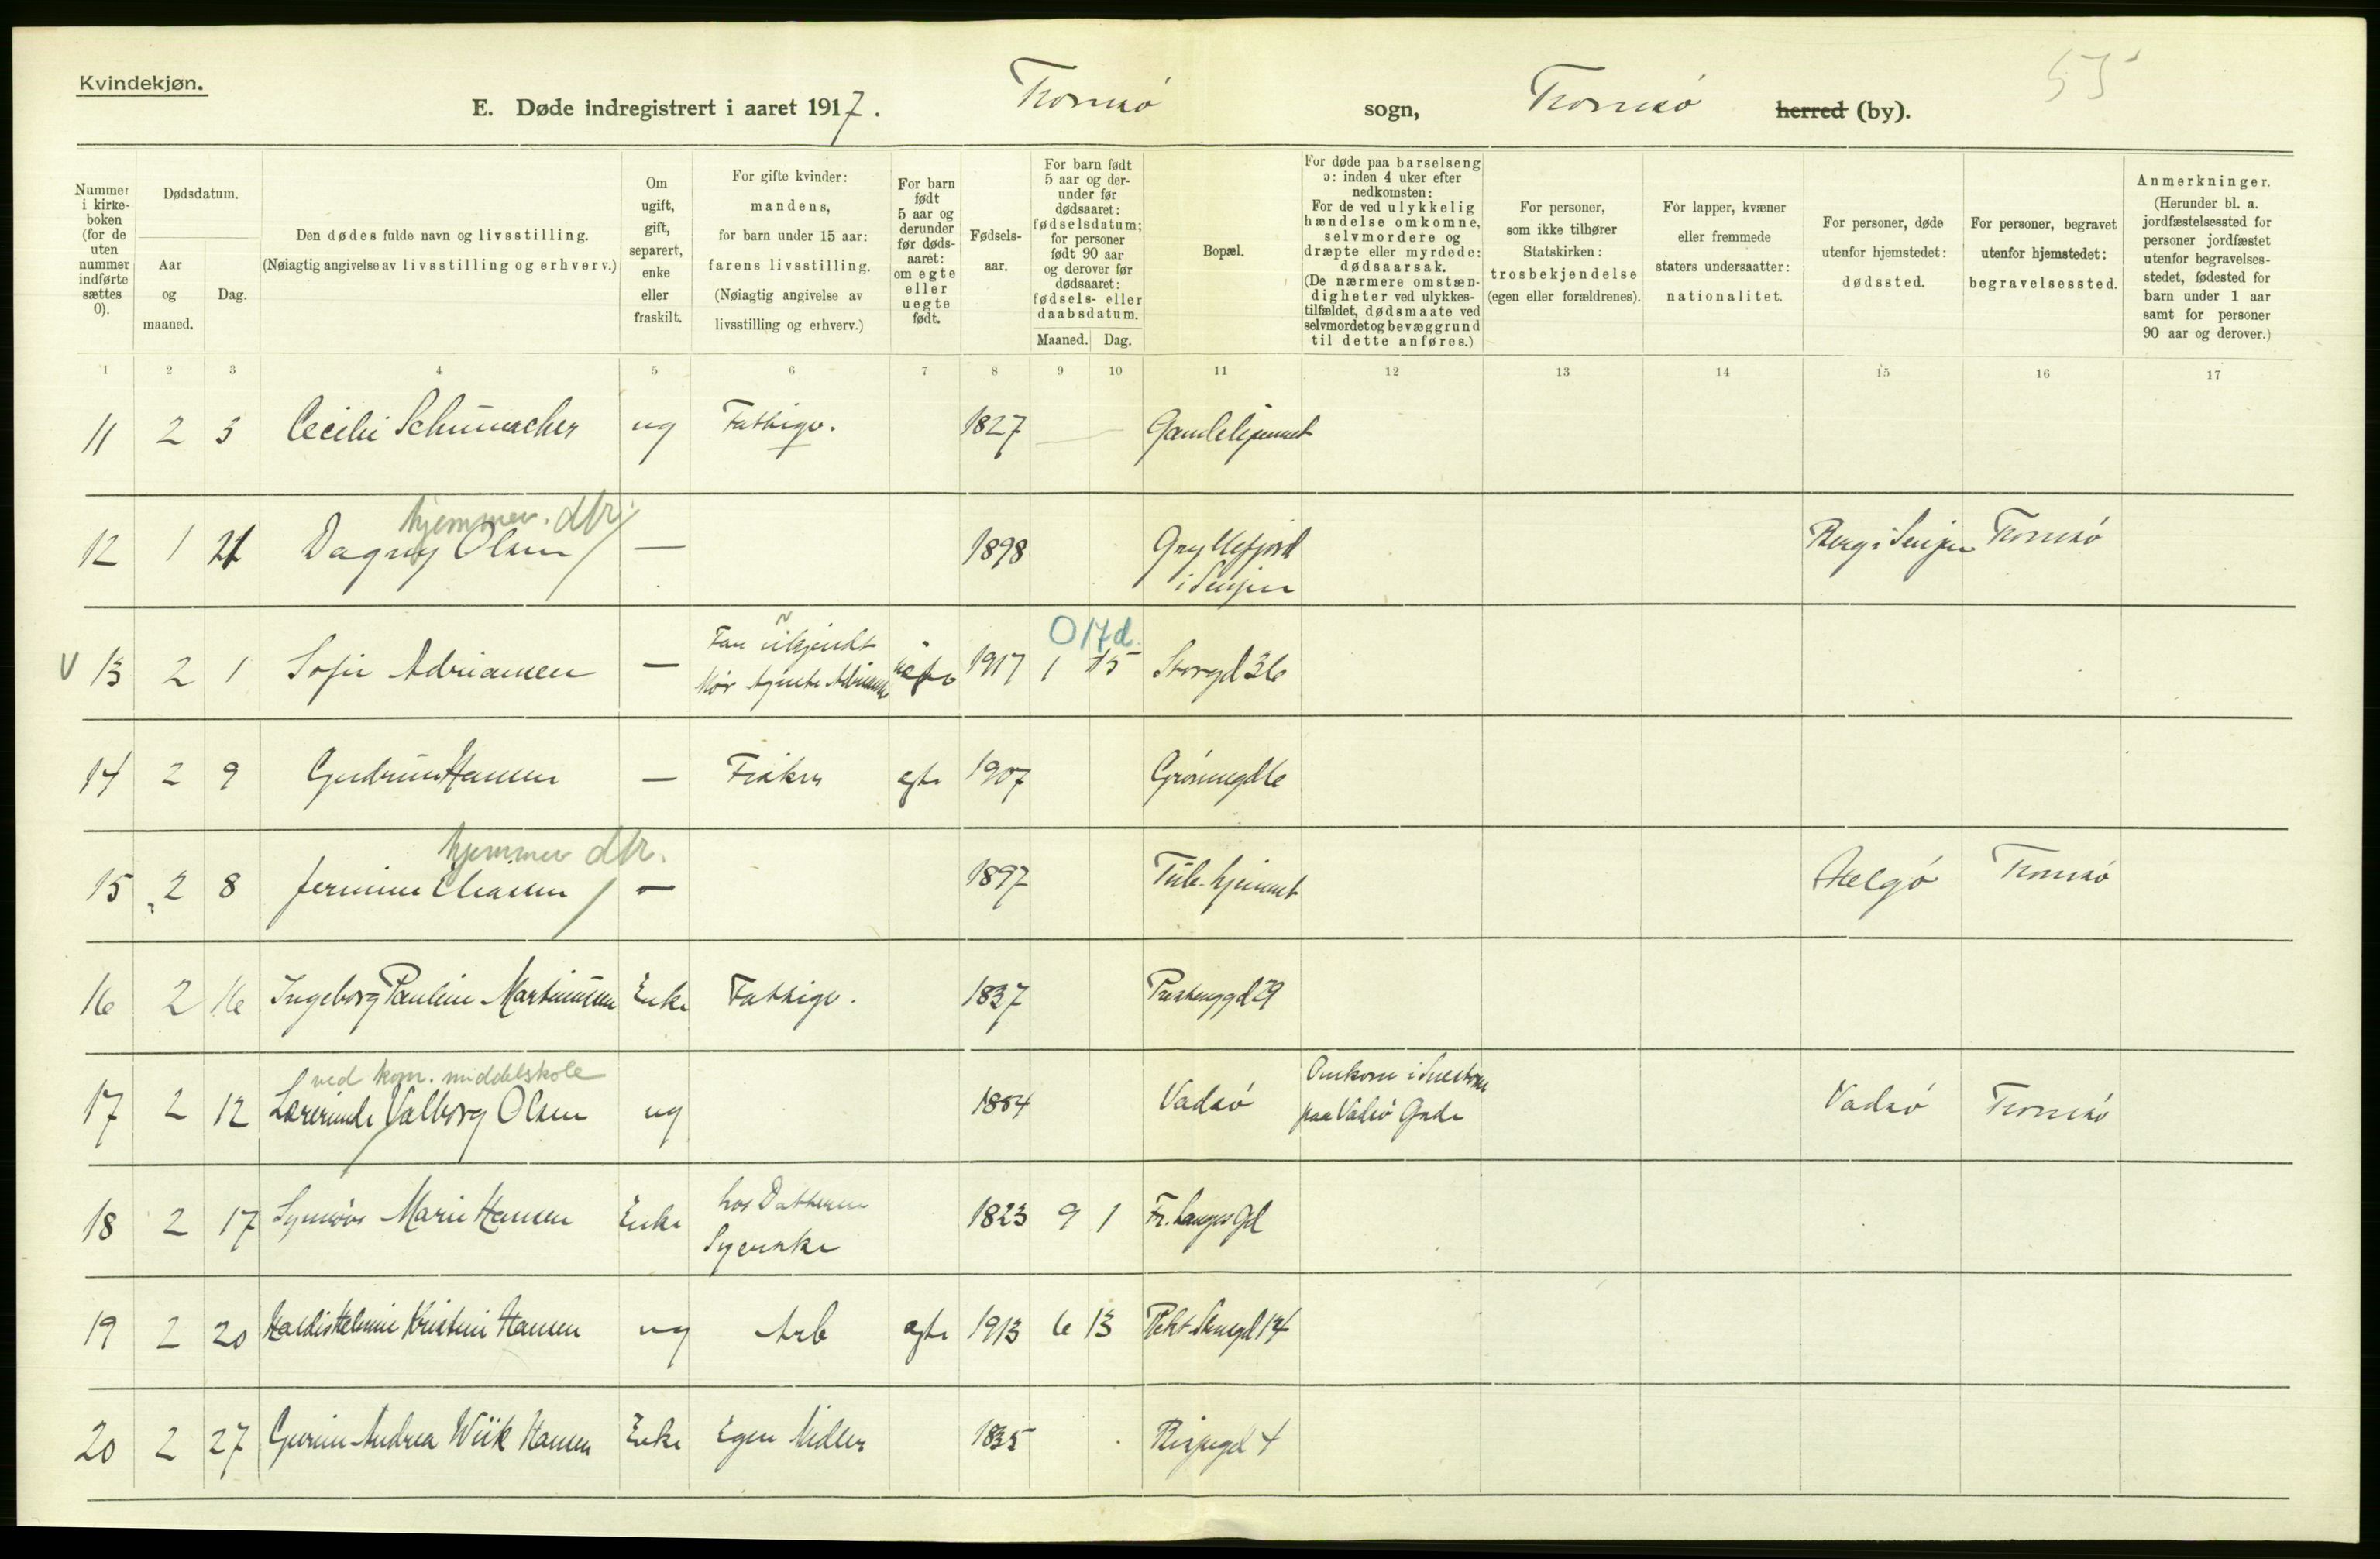 Kvindekjøn.
E. Døde indregistrert i aaret 1917. Tromsø sogn, Tromsø herred (by). 55
Nummer i kirkeboken (for de uten nummer indførte sættes 0).
Dødsdatum.
Aar og maaned.
Dag.
Den dødes fulde navn og livsstilling.
(Nøiagtig angivelse av livsstilling og erhverv.)
Om ugift, gift, separert, enke eller fraskilt.
For gifte kvinder: mandens, for barn under 15 aar: farens livsstilling. (Nøiagtig angivelse av livsstilling og erhverv.)
For barn født 5 aar og derunder før dødsaaret: om egte eller uegte født.
Fødselsaar.
For barn født 5 aar og derunder før dødsaaret: fødselsdatum; for personer født 90 aar og derover før dødsaaret: fødsels- eller daabsdatum.
Maaned. Dag.
Bopæl.
For døde paa barselseng ɔ: inden 4 uker efter nedkomsten: For de ved ulykkelig hændelse omkomne, selvmordere og dræpte eller myrdede: dødsaarsak. (De nærmere omstændigheter ved ulykkestilfældet, dødsmaate ved selvmordet og bevæggrund til dette anføres.)
For personer, som ikke tilhører Statskirken: trosbekjendelse (egen eller forældrenes).
For lapper, kvæner eller fremmede staters undersaatter: nationalitet.
For personer, døde utenfor hjemstedet: dødssted.
For personer, begravet utenfor hjemstedet: begravelsessted.
Anmerkninger. (Herunder bl. a. jordfæstelsessted for personer jordfæstet utenfor begravelsesstedet, fødested for barn under 1 aar samt for personer 90 aar og derover.)
1 2 3 4 5 6 7 8 9 10 11 12 13 14 15 16 17
11 2 3 Cecilie Schumacher ug Fattigv. 1827 Gamlehjemmet
hjemmev. dtr.
12 1 21 Dagny Olsen — 1898 Gryllefjord i Senjen Berg i Senjen Tromsø
Far ukjendt 0 17 d.
V 13 2 1 Sofie Adriansen — Mor Agnete Adriansen uegte 1917 1 15 Storgd 36
14 2 9 Gudrun Hansen — Fisker egte 1907 Grønnegd 6
hjemmev dtr.
15 2 8 Jermine Eliassen — 1897 Tub. hjemmet Helgø Tromsø
16 2 16 Ingeborg Pauline Martinussen Enke Fattigv. 1837 Prestenggd 29
ved kom. middelskole
17 2 12 Lærerinde Valborg Olsen ug 1884 Vadsø Omkom i Snestorm paa Vadsø Gade Vadsø Tromsø
18 2 17 Synnøve Marie Hansen Enke hos Datteren Syerske 1823 9 1 Fr. Langes Gd
19 2 20 Haldis Helmine Kristine Hansen ug Arb egte 1913 6 13 Pet Stengd 14
20 2 27 Andrea Wiik Hansen Enke Egne Midler 1835 4